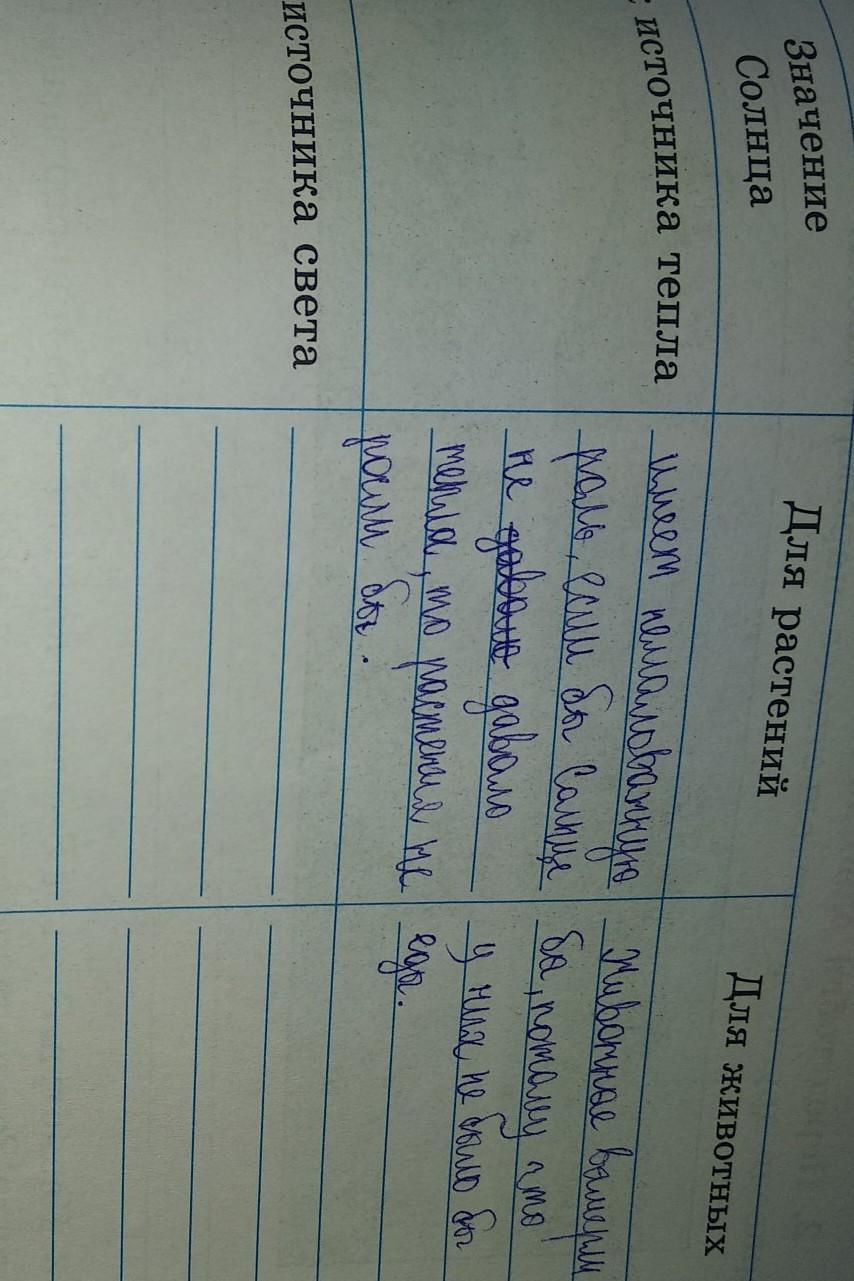 Значение
Солнца
Для растений
Для животных
источника тепла
имеет немаловажную
роль, если бы Солнце
не давало давало
тепла, то растения не
росли бы.
Животные вымерли
бы, потому что
у них не было бы
еды.
источника света